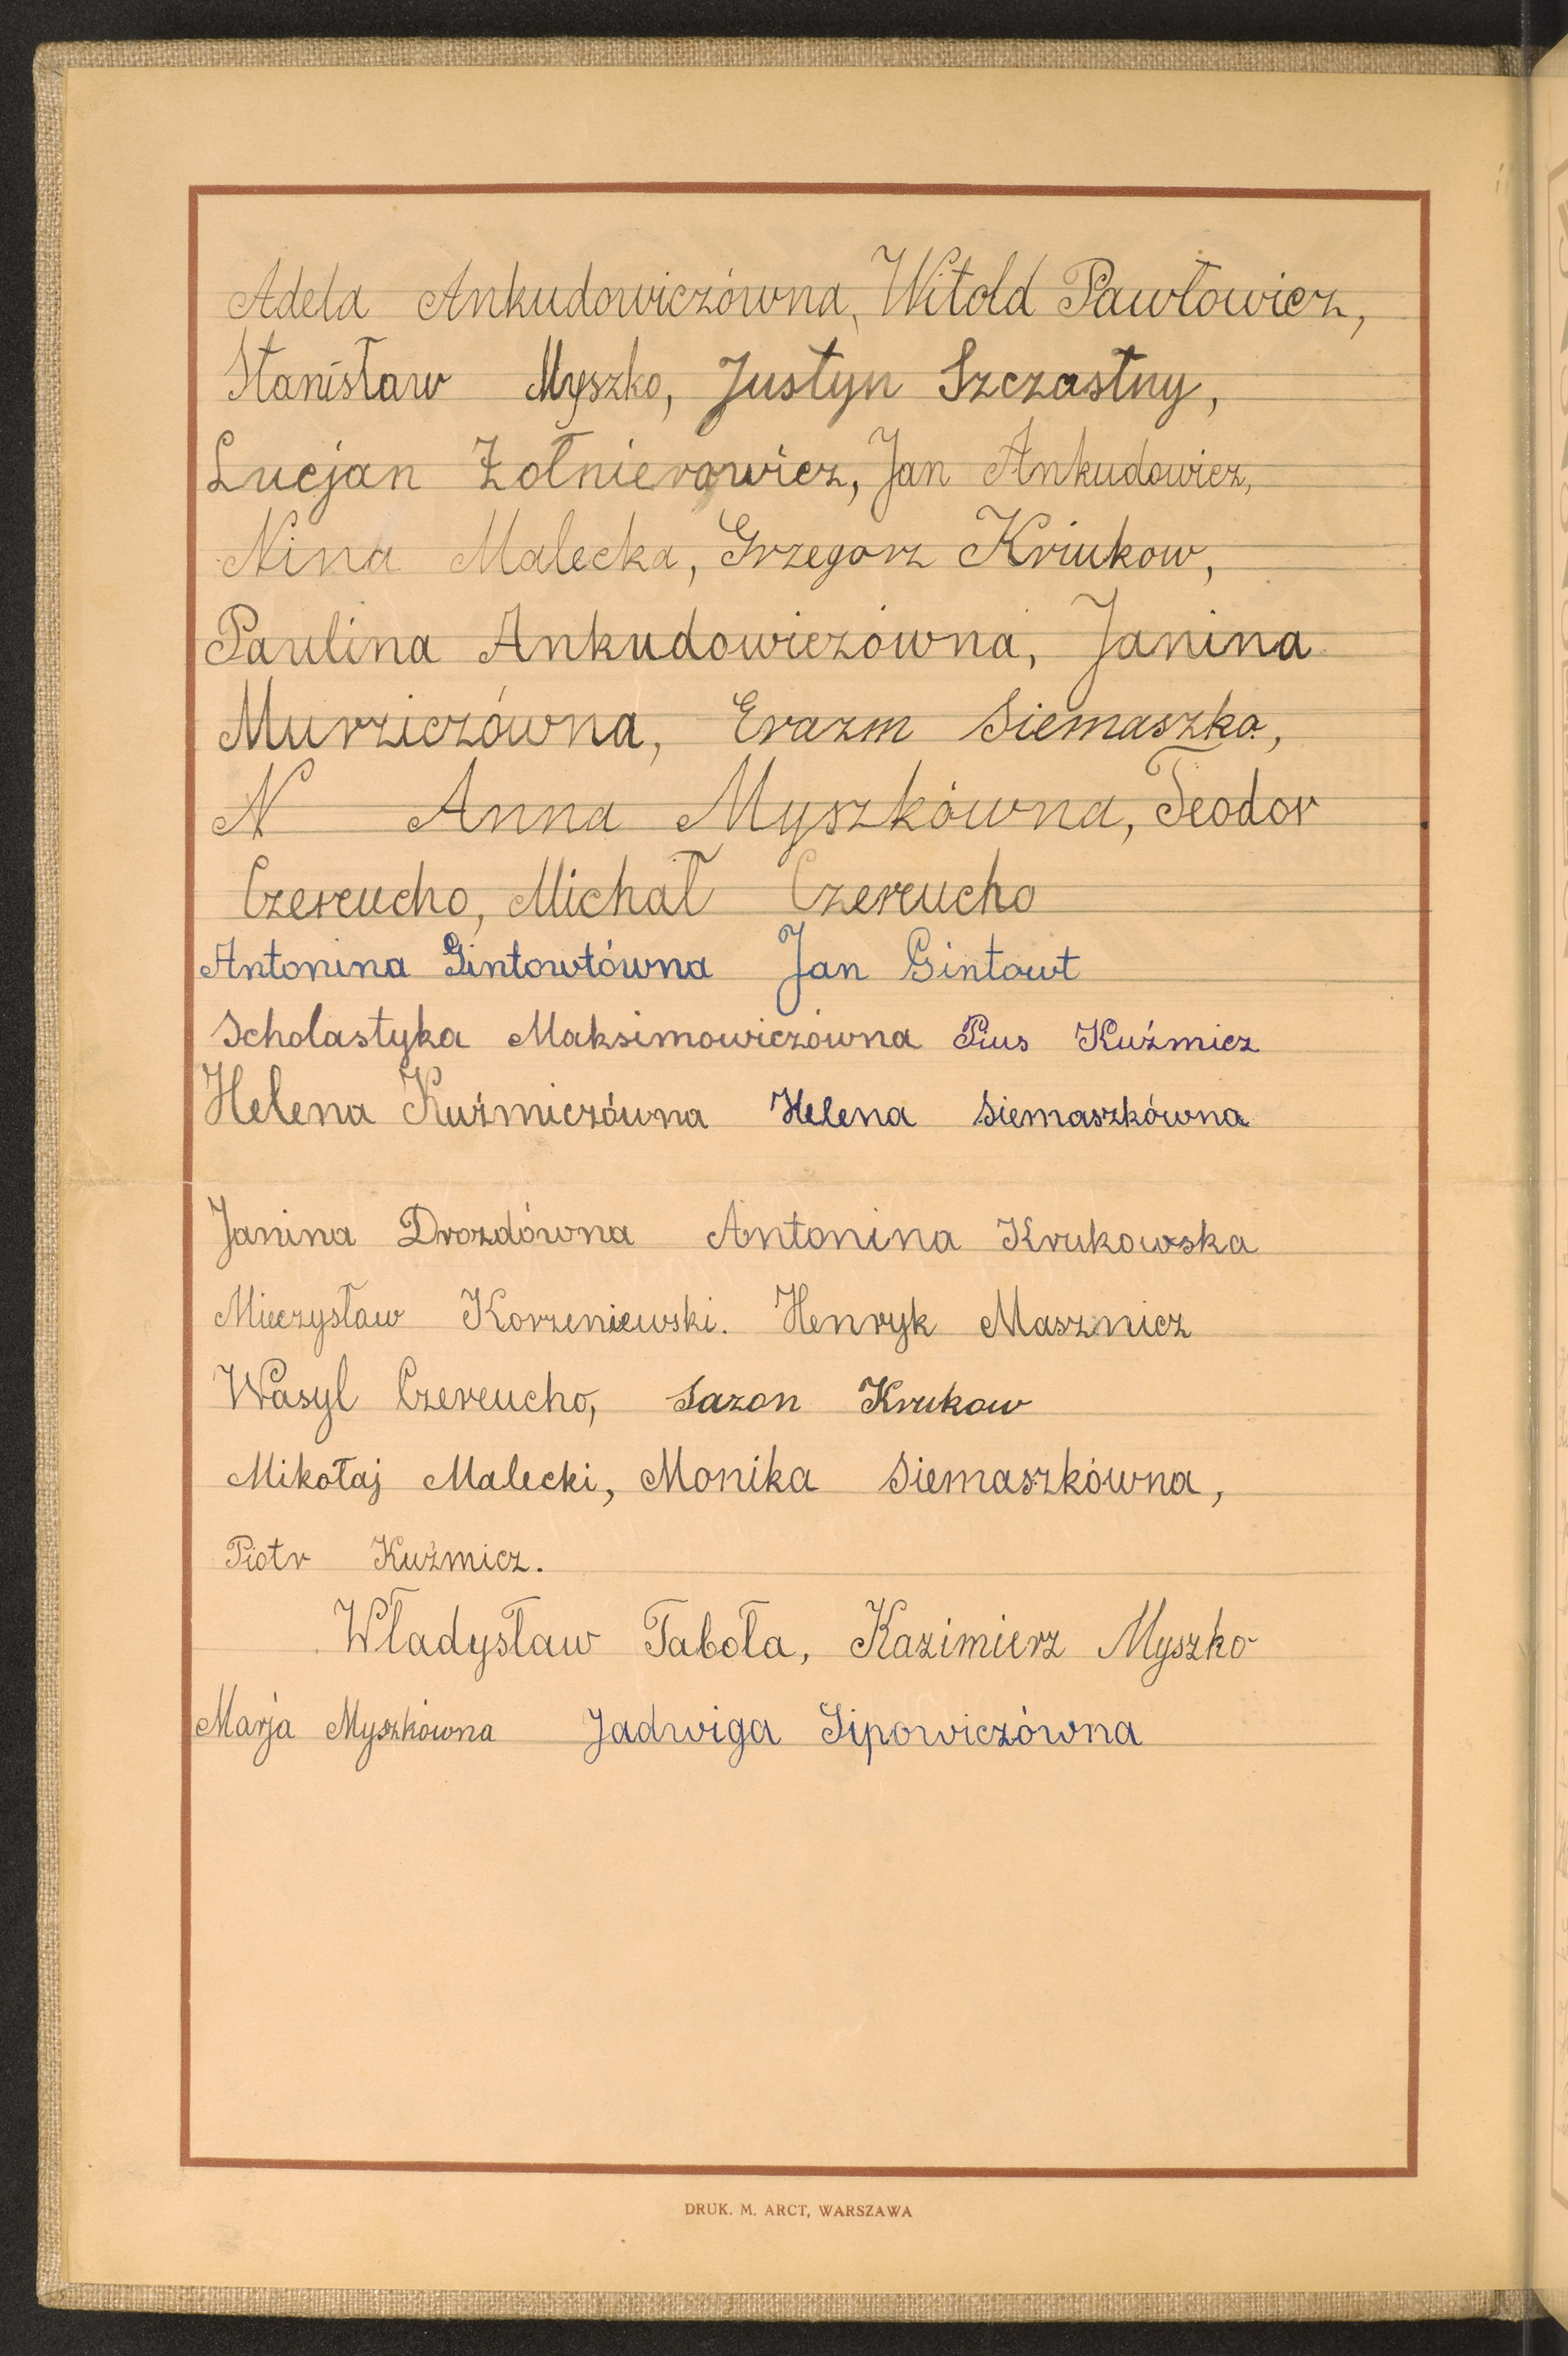 Adela Ankudowiczówna, Witold Pawłowicz,
Stanisław Myszko, Justyn Szczastny,
Lucjan Żołnierowicz, Jan Ankudowicz,
Nina Malecka, Grzegorz Kriukow,
Paulina Ankudowiczówna, Janina
Murziczówna, Erazm Siemaszko,
N Anna Myszkówna, Teodor
Czereucho, Michał Czereucho
Antonina Gintowtówna Jan Gintowt
Scholastyka Maksimowiczówna Pius Kuźmicz
Helena Kuźmiczówna Helena Siemaszkówna
Janina Drozdówna Antonina Krukowska
Mieczysław Korzeniewski. Henryk Masznicz
Wasyl Czereucho, Sazon Krukow
Mikołaj Malecki, Monika Siemaszkówna,
Piotr Kuźmicz.
Władysław Taboła, Kazimierz Myszko
Marja Myszkówna Jadwiga Sipowiczówna
DRUK. M. ARCT, WARSZAWA